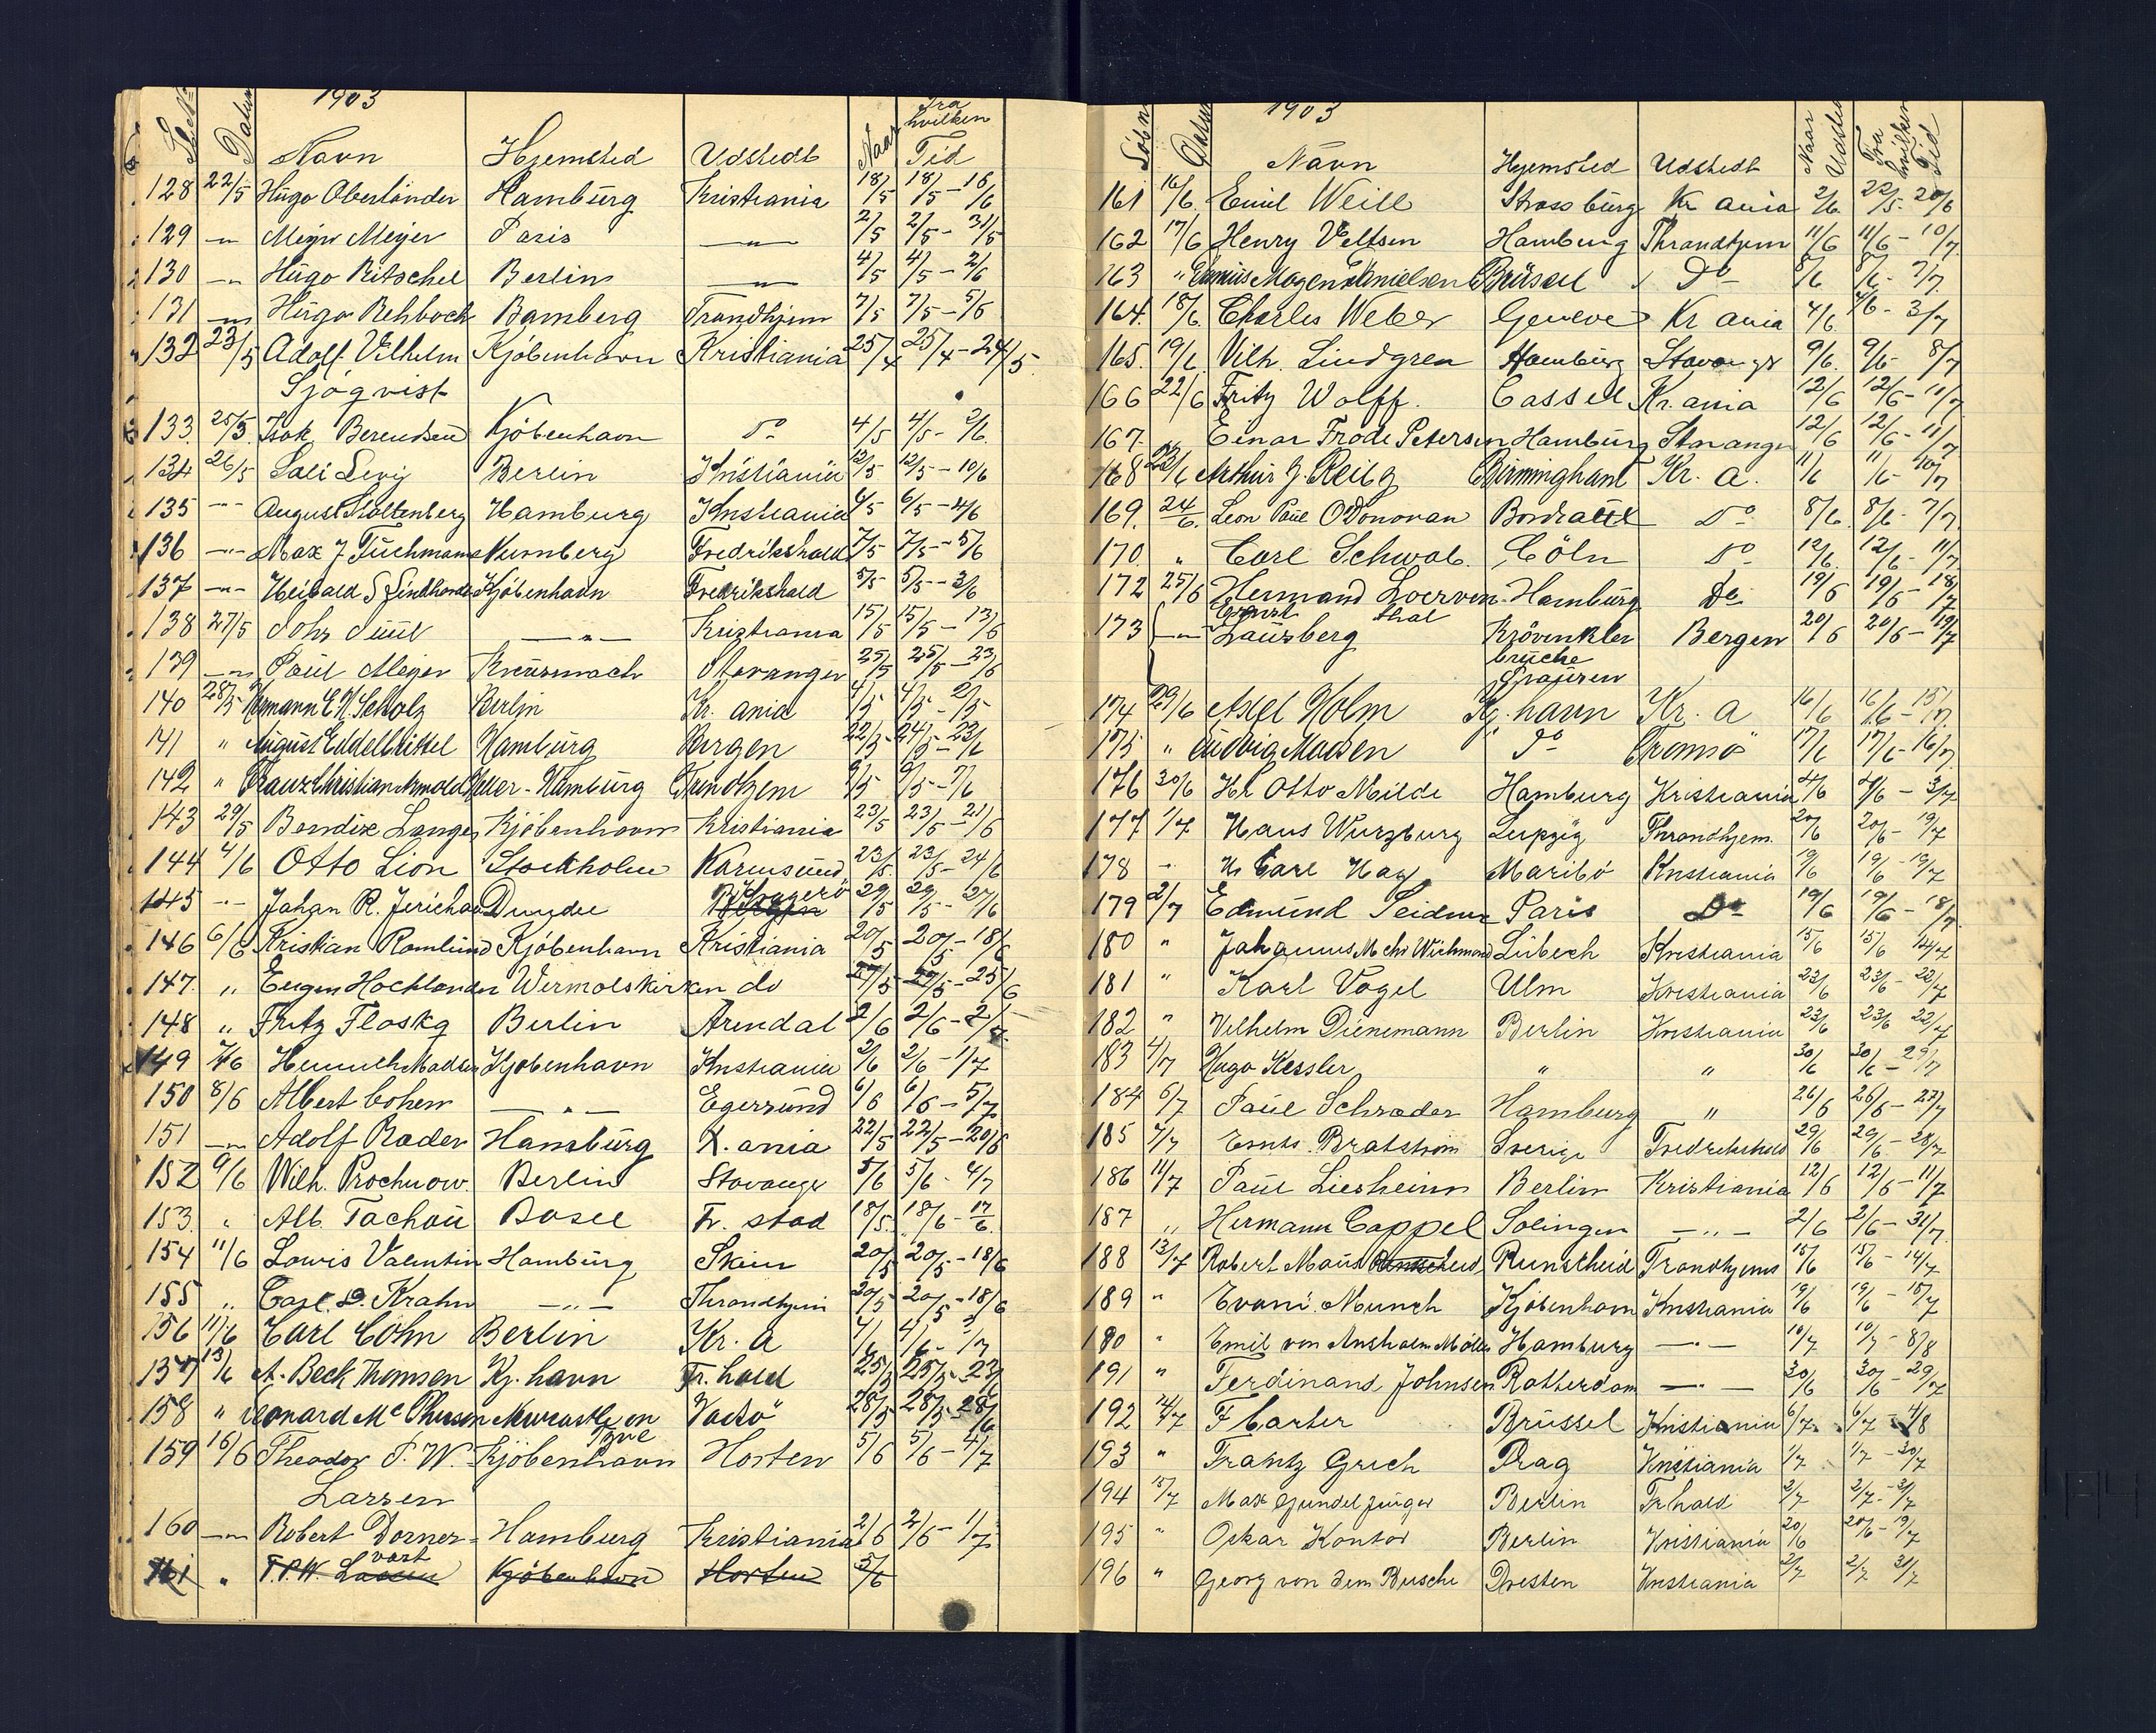 1903
Navn Hjemsted Udstedt Naar Fra hvilken Tid
128 22/5 Hugo Oberländer Hamburg Kristiania 18/5 18/5 - 16/6
129 -"- Meyer Paris -"- 2/5 2/5 - 31/5
130 -"- Hugo Ritschel Berlin -"- 4/5 4/5 - 2/6
131 -"- Hugo Rehbock Bamberg Trondhjem 7/5 7/5 -
132 23/5 Adolf Vilhelm Kjøbenhavn Kristiania 25/4 25/4 - 24/5
Sjöqvist
133 25/5 Isak Berendsen Kjöbenhavn Do 4/5 4/5 - 2/6
134 26/5 Sali Levy Berlin Kristiania 12/5 12/5 - 10/6
135 -"- August Stoltenberg Hamburg Kristiania 6/5 - 4/6
136 -"- Max J Tuchmann Nurnberg Fredrikshald 7/5 7/5 - 5/6
137 -"- S Kjöbenhavn Fredrikshald 5/5 5/5 - 3/6
138 27/5 Johs Juul -"- Kristiania 15/5 15/5 - 13/6
139 -"- Paul Meyer Kreusnach Stavanger 25/5 25/5 - 23/6
140 28/5 Hermann E. K. Scholz Berlin Kr. ania 4/5 4/5 -
141 " August Hamburg Bergen
142 " Franz Christian Arnold Heller - Hamburg Trondhjem 9/5 9/5 - 7/6
143 29/5 Bendix Langer Kjöbenhavn Kristiania 23/5 23/5 - 21/6
144 4/6 Otto Lion Stockholm Karmsund 23/5 23/5 - 24/6
145 -"- Johan R. Jerichau Dundee Kragerö 29/5 29/5 - 27/6
146 6/6 Kristian Romlund Kjöbenhavn Kristiania 20/5 20/5 - 18/6
147 " Eugen Hochlander Wermolskirken do 27/5 27/5 - 25/6
148 " Fritz Floskg Berlin Arendal 2/6 2/6 -
149 7/6 Madsen Kjøbenhavn Kristiania 2/6 2/6 - 1/7
150 8/6 Albert Cohen -"- Egersund 6/6 6/6 - 5/7
151 -"- Adolf Rader Hamburg K. ania 22/5 22/5 - 20/6
152 9/6 Wilh. Prochnow Berlin Stavanger 5/6 5/6 - 4/7
153 " Alb. Tachau Basel Fr. stad 18/5 18/6 - 17/6
154 11/6 Lowis Valentin Hamburg Skien 20/5 20/5 - 18/6
155 " Carl. D. Krahn -"- Throndhjem 20/5 20/5 - 18/6
156 11/6 Carl Cohn Berlin Kr. a
157 13/6 A. Beck Thomsen Kj. havn Fr. hald 25/5 25/5 - 23/6
158 " Leonard Mc Newcastle on Vadsö 28/5 28/5 -
Tyne
159 16/6 Theodor P. W. Kjöbenhavn Horten 5/6 5/6 - 4/7
Larsen
160 -"- Robert Dorner Hamburg Kristiania 2/6 2/6 - 1/7
vart
161 " T.P.W. Lassen Kjöbenhavn Horten 5/6
1903
Löbn Datum Navn Hjemsted Udstedt Naar Udstedt Fra hvilken Tid
161 16/6 Emil Weill Strassburg Kr ania 2/6 22/5 - 20/6
162 17/6 Henry Veltsen Hamburg Throndhjem 11/6 11/6 - 10/7
163 " Mogens Danielsen Brüssel Do 8/6 8/6 - 7/7
164 18/6 Charles Weber Geneve Kr ania 4/6 4/6 - 3/7
165 19/6 Vilh. Lindgren Hamburg Stavanger 9/6 9/6 8/7
166 22/6 Fritz Wolff. Cassel Kr. ania 12/6 12/6 - 11/7
167. Einar Frode Petersen Hamburg Stavanger 12/6 12/6 - 11/7
168 23/6 Arthur J. Birmingham Kr. a. 11/6 11/6 - 10/7
169. 24/6 Leon Paul O'Donovan Bordeaux Do 8/6 8/6 - 7/7
170 " Carl Schwab Cöln Do 12/6 12/6 - 11/7
172 25/6 Hermand Loerven- Hamburg Do 19/6 19/6 - 18/7
thal
173 -"- Ernst Lausberg Krövinkler Bergen 20/6 20/6 - 19/7
brücke
174 29/6 Axel Holm Kj. havn Kr. a 16/6 16/6 - 15/7
175 " Ludvig Madsen Do Tromsö 17/6 17/6 - 16/7
176 30/6 Otto Milde Hamburg Kristiania 4/6 4/6 - 3/7
177 1/7 Hans Wurzburg Leipzig Throndhjem. 20/6 20/6 - 19/7
178 -"- Carl Maribo Kristiania 19/6 19/6 - 19/7
179 2/7 Edmund Paris Do 19/6 19/6 - 18/7
180 " Johannes Wichmann Lübech Kristiania 15/6 15/6 14/7
181 " Karl Vogel Ulm Kristiania 23/6 23/6 - 22/7
182 " Vilhelm Dienemann Berlin Kristiania 23/6 23/6 22/7
183 4/7 Hugo Kessler " " 30/6 30/6 - 29/7
184 6/7 Paul Schrader Hamburg " 26/6 26/6 -
185 7/7 Bratström Sverige Fredrikshald 29/6 29/6 - 28/7
186 11/7 Paul Liesheim Berlin Kristiania 12/6 12/6 - 11/7
187 " Hermann Cappel Solingen -"- 2/6 2/6 - 31/7
188 13/7 Robert Maus Remscheid Trondhjem 15/6 15/6 - 14/7
189 " Munch Kjöbenhavn Kristiania 19/6 19/6 -
190 " Emil von Möller Hamburg -"- 10/7 10/7 - 8/8
191 " Ferdinand Johnsen Rotterdam -"- 30/6 30/6 - 29/7
192 14/7 F Carter Brüssel Kristiania 6/7 6/7 - 4/8
193 " Frantz Grich Prag Kristiania 1/7 1/7 - 30/7
194 15/7 Max Gundelfinger Berlin Fr hald 2/7 2/7 - 31/7
195 " Oskar Kontor Berlin Kristiania 20/6 20/6 - 19/7
196 " Georg von dem Busche Dresten Kristiania 2/7 2/7 31/7